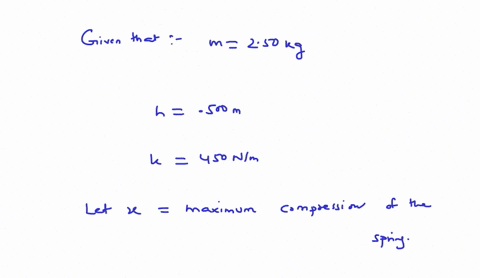 Given that :- m = 2.50 kg
h = .500 m
k = 450 N/m
Let x = maximum compression of the
spring.